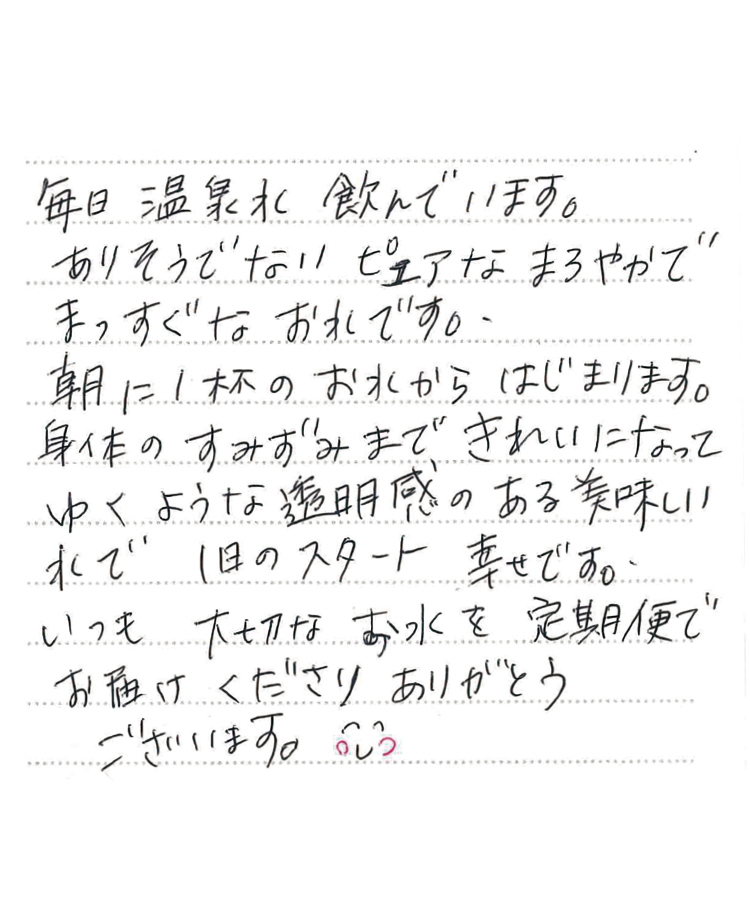 毎日 温泉水 飲んでいます。
ありそうでない ピュアな まろやかで
まっすぐな お水です。
朝に1杯の お水から はじまります。
身体の すみずみまで きれいになって
ゆく ような 透明感の ある 美味しい
水で 1日の スタート 幸せです。
いつも 大切な お水を 定期便で
お届け くださり ありがとう
ございます。